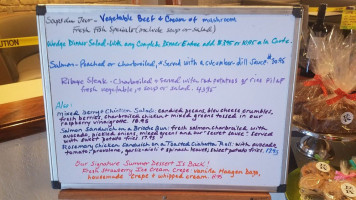 Soup du Jour - Vegetable Beef & Cream of mushroom
Fresh Fish Specials (include soup or salad)
Wedge Dinner Salad - with any Complete Dinner Entree add
Salmon - Poached or charbroiled, & Served with a cucumber-dill Sauce
Ribeye Steak - Charbroiled & Served with red potatoes or rice Pilaf
fresh vegetable, & soup or salad. 43.95
Also:
Mixed berry & Chicken Salad: candied pecans, bleu cheese crumbles,
fresh berries, charbroiled chicken & mixed greens tossed in our
raspberry vinaigrette 18.95
Salmon Sandwich on a Brioche Bun: fresh salmon charbroiled with
avocado, pickled onions, mixed greens and our "secret sauce". Served
with sweet potato fries 17.95
Rosemary Chicken Sandwich on a Toasted Ciabatta Roll: with avocado,
tomato, provolone, garlic-aioli & spinach leaves, sweet potato fries.
Our Signature Summer Dessert Is Back!
Fresh Strawberry Ice Cream Crepe: vanilla Haagen Dazs,
homemade crepe & whipped cream.